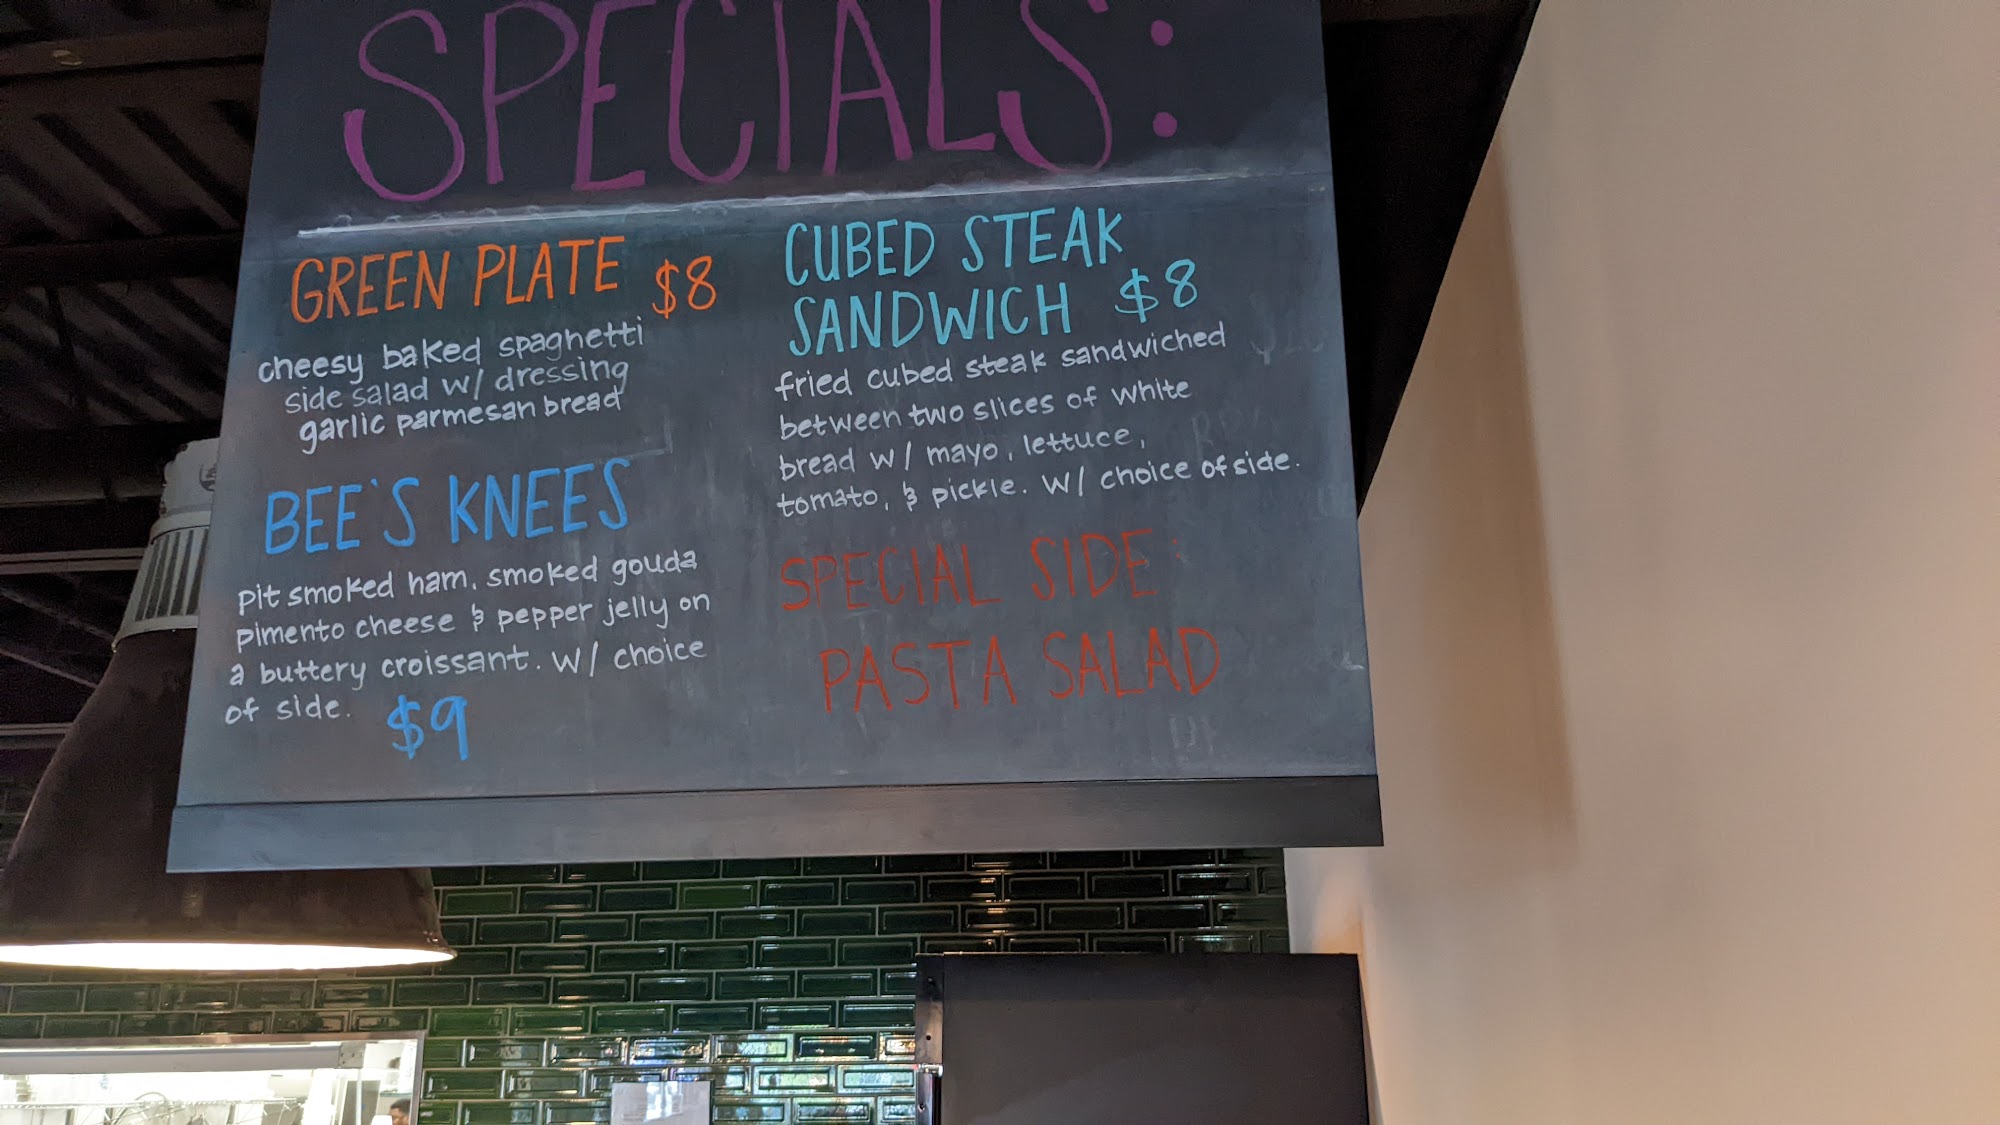 SPECIALS:
GREEN PLATE $8
cheesy baked spaghetti
side salad w/ dressing
garlic parmesan bread
BEE'S KNEES
pit smoked ham, smoked gouda
pimento cheese & pepper jelly on
a buttery croissant. w/ choice
of side. $9
CUBED STEAK
SANDWICH $8
fried cubed steak sandwiched
between two slices of white
bread w/ mayo, lettuce,
tomato, & pickle. w/ choice of side.
SPECIAL SIDE:
PASTA SALAD